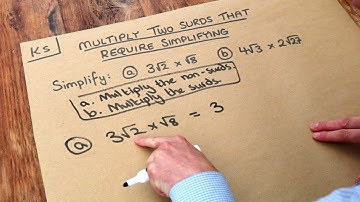 KS
MULTIPLY TWO SURDS THAT
REQUIRE SIMPLIFYING
Simplify: ⓐ 3√2 × √8 ⓑ 4√3 × 2√27
a. Multiply the non-surds.
b. Multiply the surds
ⓐ 3√2 × √8 = 3